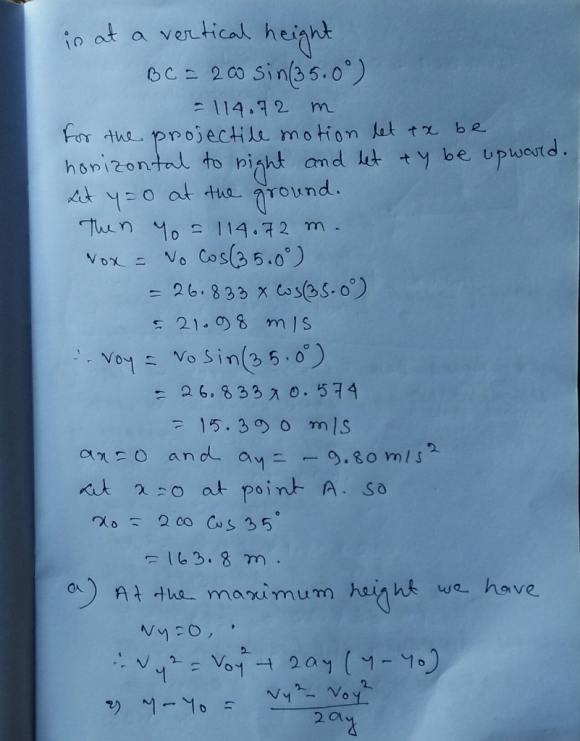 is at a vertical height
BC = 200 sin(35.0°)
= 114.72 m
For the projectile motion let +x be
horizontal to right and let +y be upward.
Let y=0 at the ground.
Then y₀ = 114.72 m.
v₀x = v₀ cos(35.0°)
= 26.833 x cos(35.0°)
= 21.98 m/s
∴ v₀y = v₀ sin(35.0°)
= 26.833 x 0.574
= 15.390 m/s
ax=0 and ay = -9.80 m/s²
Let x=0 at point A. so
x₀ = 200 cos 35°
= 163.8 m.
a) At the maximum height we have
Vy=0,
∴ Vy² = V₀y² + 2ay (y-y₀)
⇒ y-y₀ = (Vy² - V₀y²) / 2ay